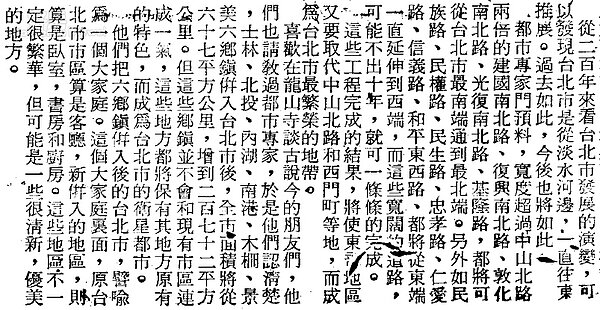 從二百年來看台北市發展的演變，可
以發現台北市是從淡水河邊，一直往東
推展。過去如此，今後也將如此。
都市專家們預料，寬度超過中山北路
兩倍的建國南北路、復興南北路、敦化
南北路、光復南北路、基隆路，都將可
從台北市最南端通到最北端。另外如民
族路、民權路、民生路、忠孝路、仁愛
路、信義路、和平東西路、都將從東端
一直延伸到西端，而這些寬闊的道路，
可能不出十年，就可一條條的完成。
這些工程完成的結果，將使東 地區
又要取代中山北路和西門町等地，而成
為台北市最繁榮的地帶。
喜歡在龍山寺談古說今的朋友們，他
們也請敎過都市專家，於是他們認清楚
，士林、北投、內湖、南港、木柵、景
美六鄉鎮倂入台北市後，全市面積將從
六十七平方公里，增到二百七十二平方
公里。但這些鄉鎮並不會和現有市區連
成一氣，這些地方都將保有其地方原有
的特色，而成為台北市的衛星都市。
他們把六鄉鎮倂入後的台北市，譬喻
為一個大家庭。這個大家庭裏面，原台
北市市區算是客廳，新倂入的地區，則
算是臥室，書房和廚房。這些地區不一
定很繁華，但可能是一些很清新，優美
的地方。